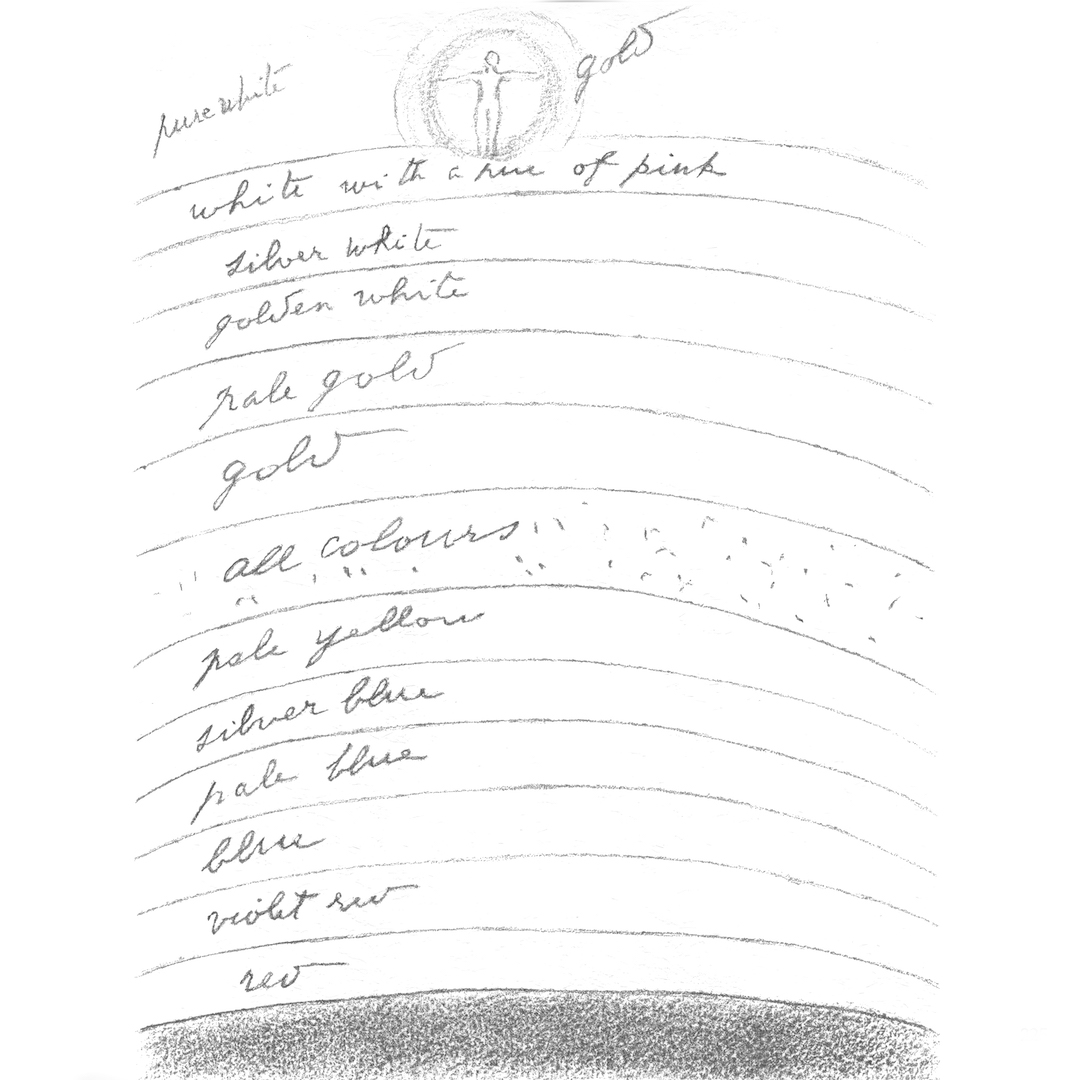 gold
pure white
white with a hue of pink
silver white
golden white
pale gold
gold
all colours
pale yellow
silver blue
pale blue
blue
violet red
red